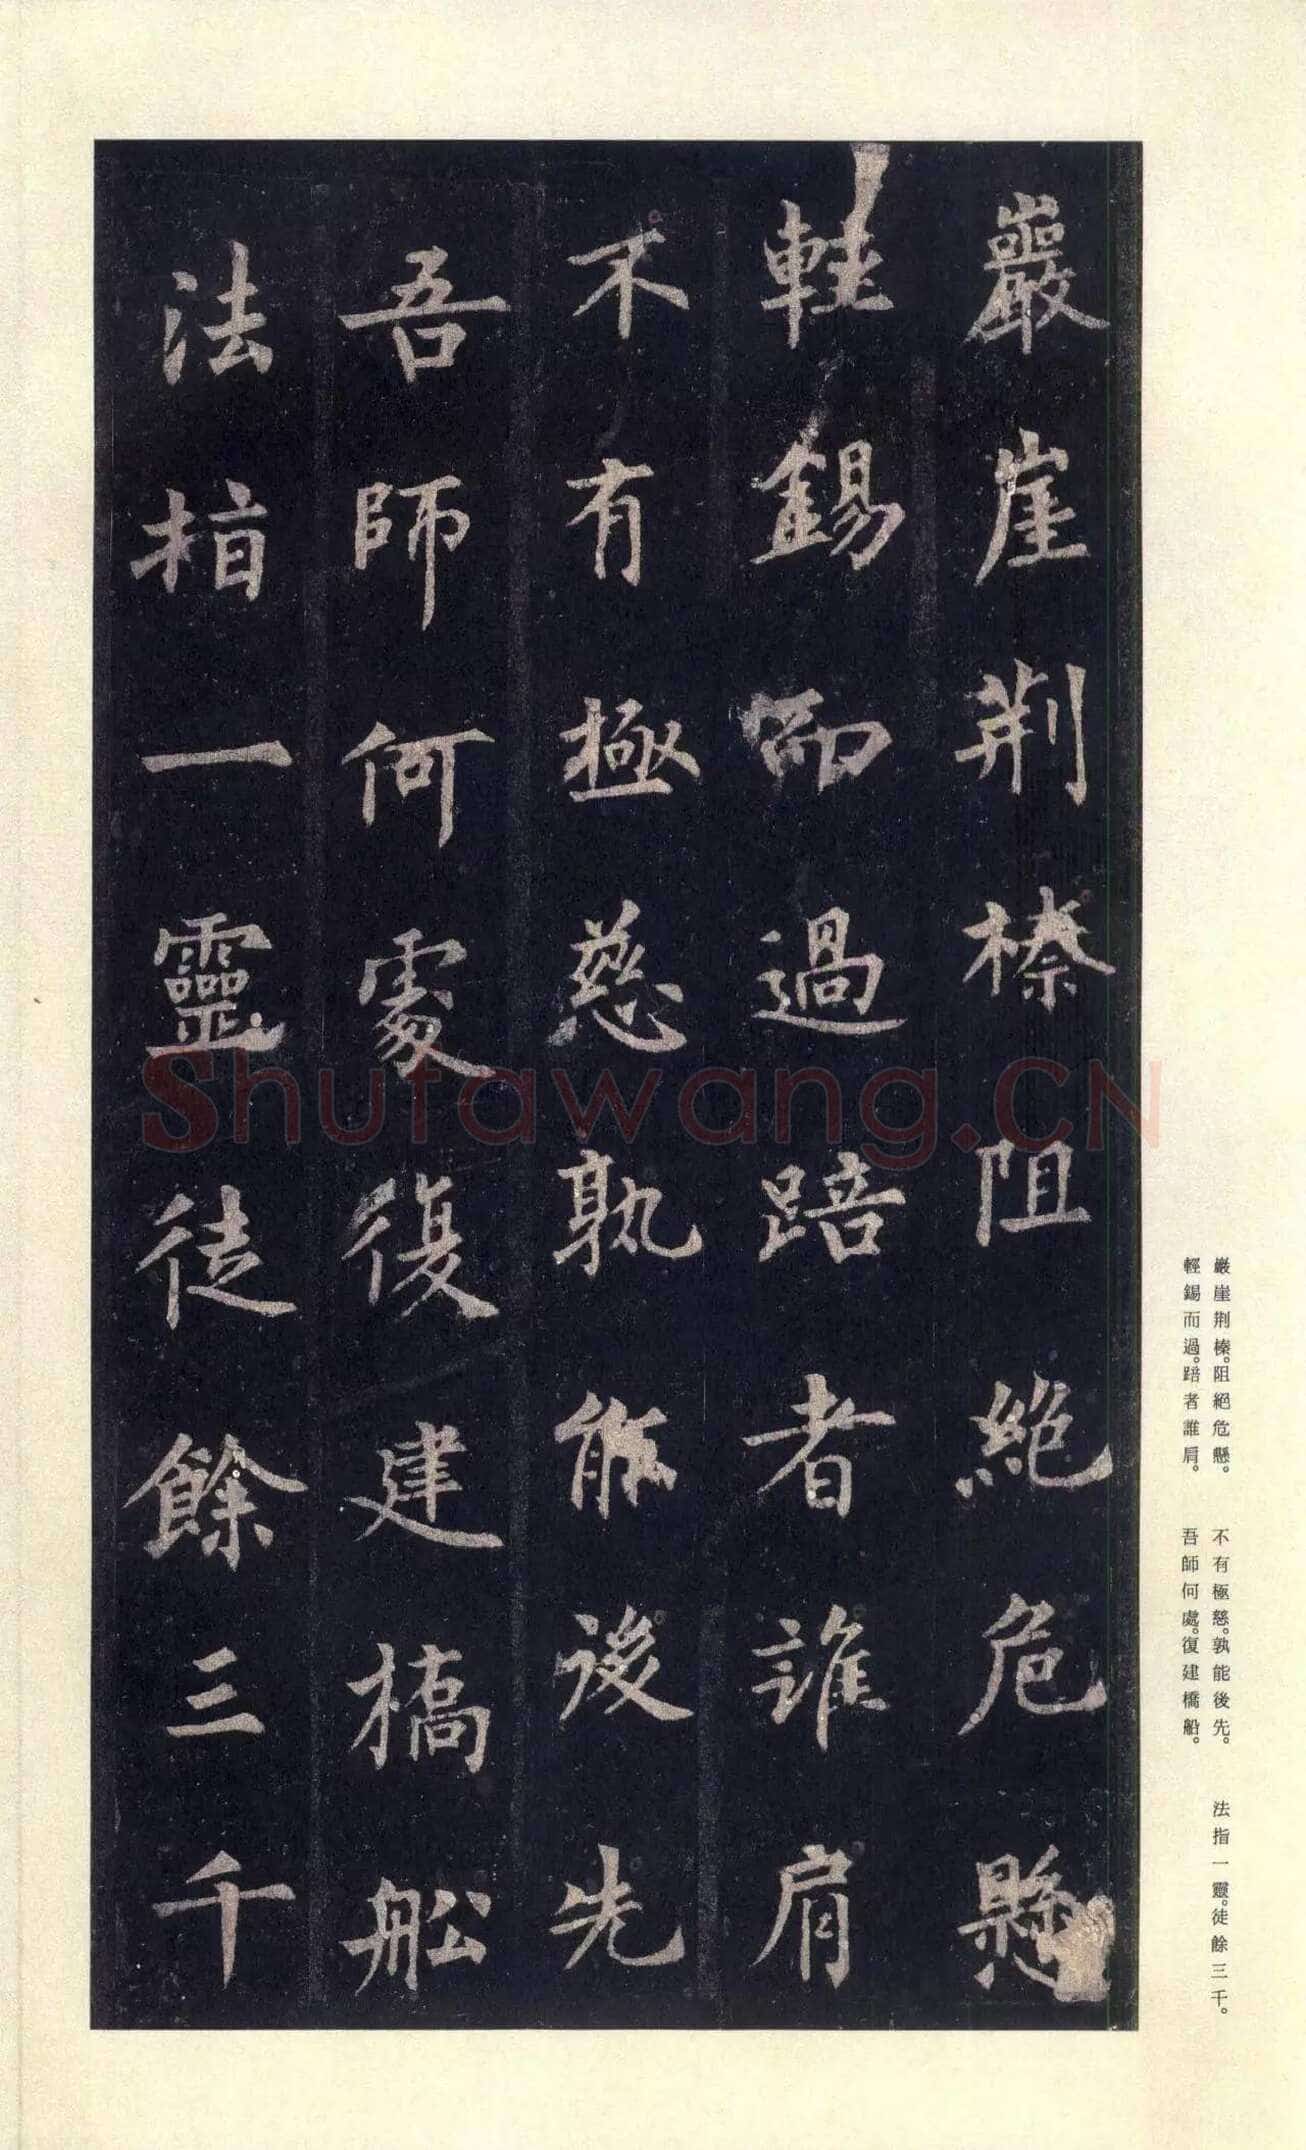 巖崖荆榛阻絶危懸
輕錫而過踣者誰肩
不有極慈孰能後先
吾師何處復建橋舩
法指一靈徒餘三千
巖崖荆榛。阻絕危懸。　不有極慈。孰能後先。　法指一靈。徒餘三千。
輕錫而過。踣者誰肩。　吾師何處。復建橋船。
Shufawang.CN